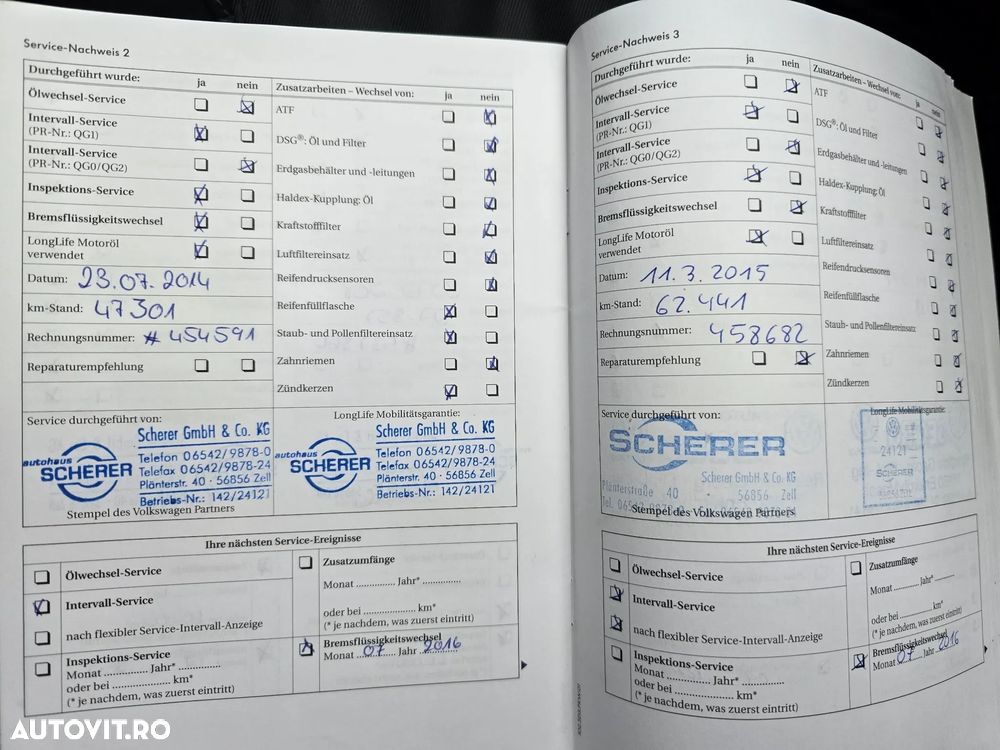 Service-Nachweis 2
Durchgeführt wurde: ja nein
Ölwechsel-Service
Intervall-Service
(PR-Nr.: QG1)
Intervall-Service
(PR-Nr.: QG0/QG2)
Inspektions-Service
Bremsflüssigkeitswechsel
LongLife Motoröl
verwendet
Datum: 23.07.2014
km-Stand: 47301
Rechnungsnummer: # 454591
Reparaturempfehlung
Zusatzarbeiten – Wechsel von: ja nein
ATF
DSG®: Öl und Filter
Erdgasbehälter und -leitungen
Haldex-Kupplung: Öl
Kraftstofffilter
Luftfiltereinsatz
Reifendrucksensoren
Reifenfüllflasche
Staub- und Pollenfiltereinsatz
Zahnriemen
Zündkerzen
Service durchgeführt von:
autohaus
SCHERER
Scherer GmbH & Co. KG
Telefon 06542/9878-0
Telefax 06542/9878-24
Plänterstr. 40 · 56856 Zell
Betriebs-Nr.: 142/24121
Stempel des Volkswagen Partners
LongLife Mobilitätsgarantie:
autohaus
SCHERER
Scherer GmbH & Co. KG
Telefon 06542/9878-0
Telefax 06542/9878-24
Plänterstr. 40 · 56856 Zell
Betriebs-Nr.: 142/24121
Ihre nächsten Service-Ereignisse
Ölwechsel-Service
Intervall-Service
nach flexibler Service-Intervall-Anzeige
Inspektions-Service
Monat ............... Jahr* ...............
oder bei .................... km*
(* je nachdem, was zuerst eintritt)
Zusatzumfänge
Monat .............. Jahr* ..............
oder bei .................. km*
(* je nachdem, was zuerst eintritt)
Bremsflüssigkeitswechsel
Monat 07 Jahr 2016
Service-Nachweis 3
Durchgeführt wurde: ja nein
Ölwechsel-Service
Intervall-Service
(PR-Nr.: QG1)
Intervall-Service
(PR-Nr.: QG0/QG2)
Inspektions-Service
Bremsflüssigkeitswechsel
LongLife Motoröl
verwendet
Datum: 11.3.2015
km-Stand: 62.441
Rechnungsnummer: 458682
Reparaturempfehlung
Zusatzarbeiten – Wechsel von: ja nein
ATF
DSG®: Öl und Filter
Erdgasbehälter und -leitungen
Haldex-Kupplung: Öl
Kraftstofffilter
Luftfiltereinsatz
Reifendrucksensoren
Reifenfüllflasche
Staub- und Pollenfiltereinsatz
Zahnriemen
Zündkerzen
Service durchgeführt von:
SCHERER
Scherer GmbH & Co. KG
Plänterstraße 40 - 56856 Zell
Stempel des Volkswagen Partners
LongLife Mobilitätsgarantie:
24121
SCHERER
Ihre nächsten Service-Ereignisse
Ölwechsel-Service
Intervall-Service
nach flexibler Service-Intervall-Anzeige
Inspektions-Service
Monat ............... Jahr* ...............
oder bei .................... km*
(* je nachdem, was zuerst eintritt)
Zusatzumfänge
Monat .......... Jahr* ..........
oder bei .............. km*
(* je nachdem, was zuerst eintritt)
Bremsflüssigkeitswechsel
Monat 07 Jahr 2016
AUTOVIT.RO